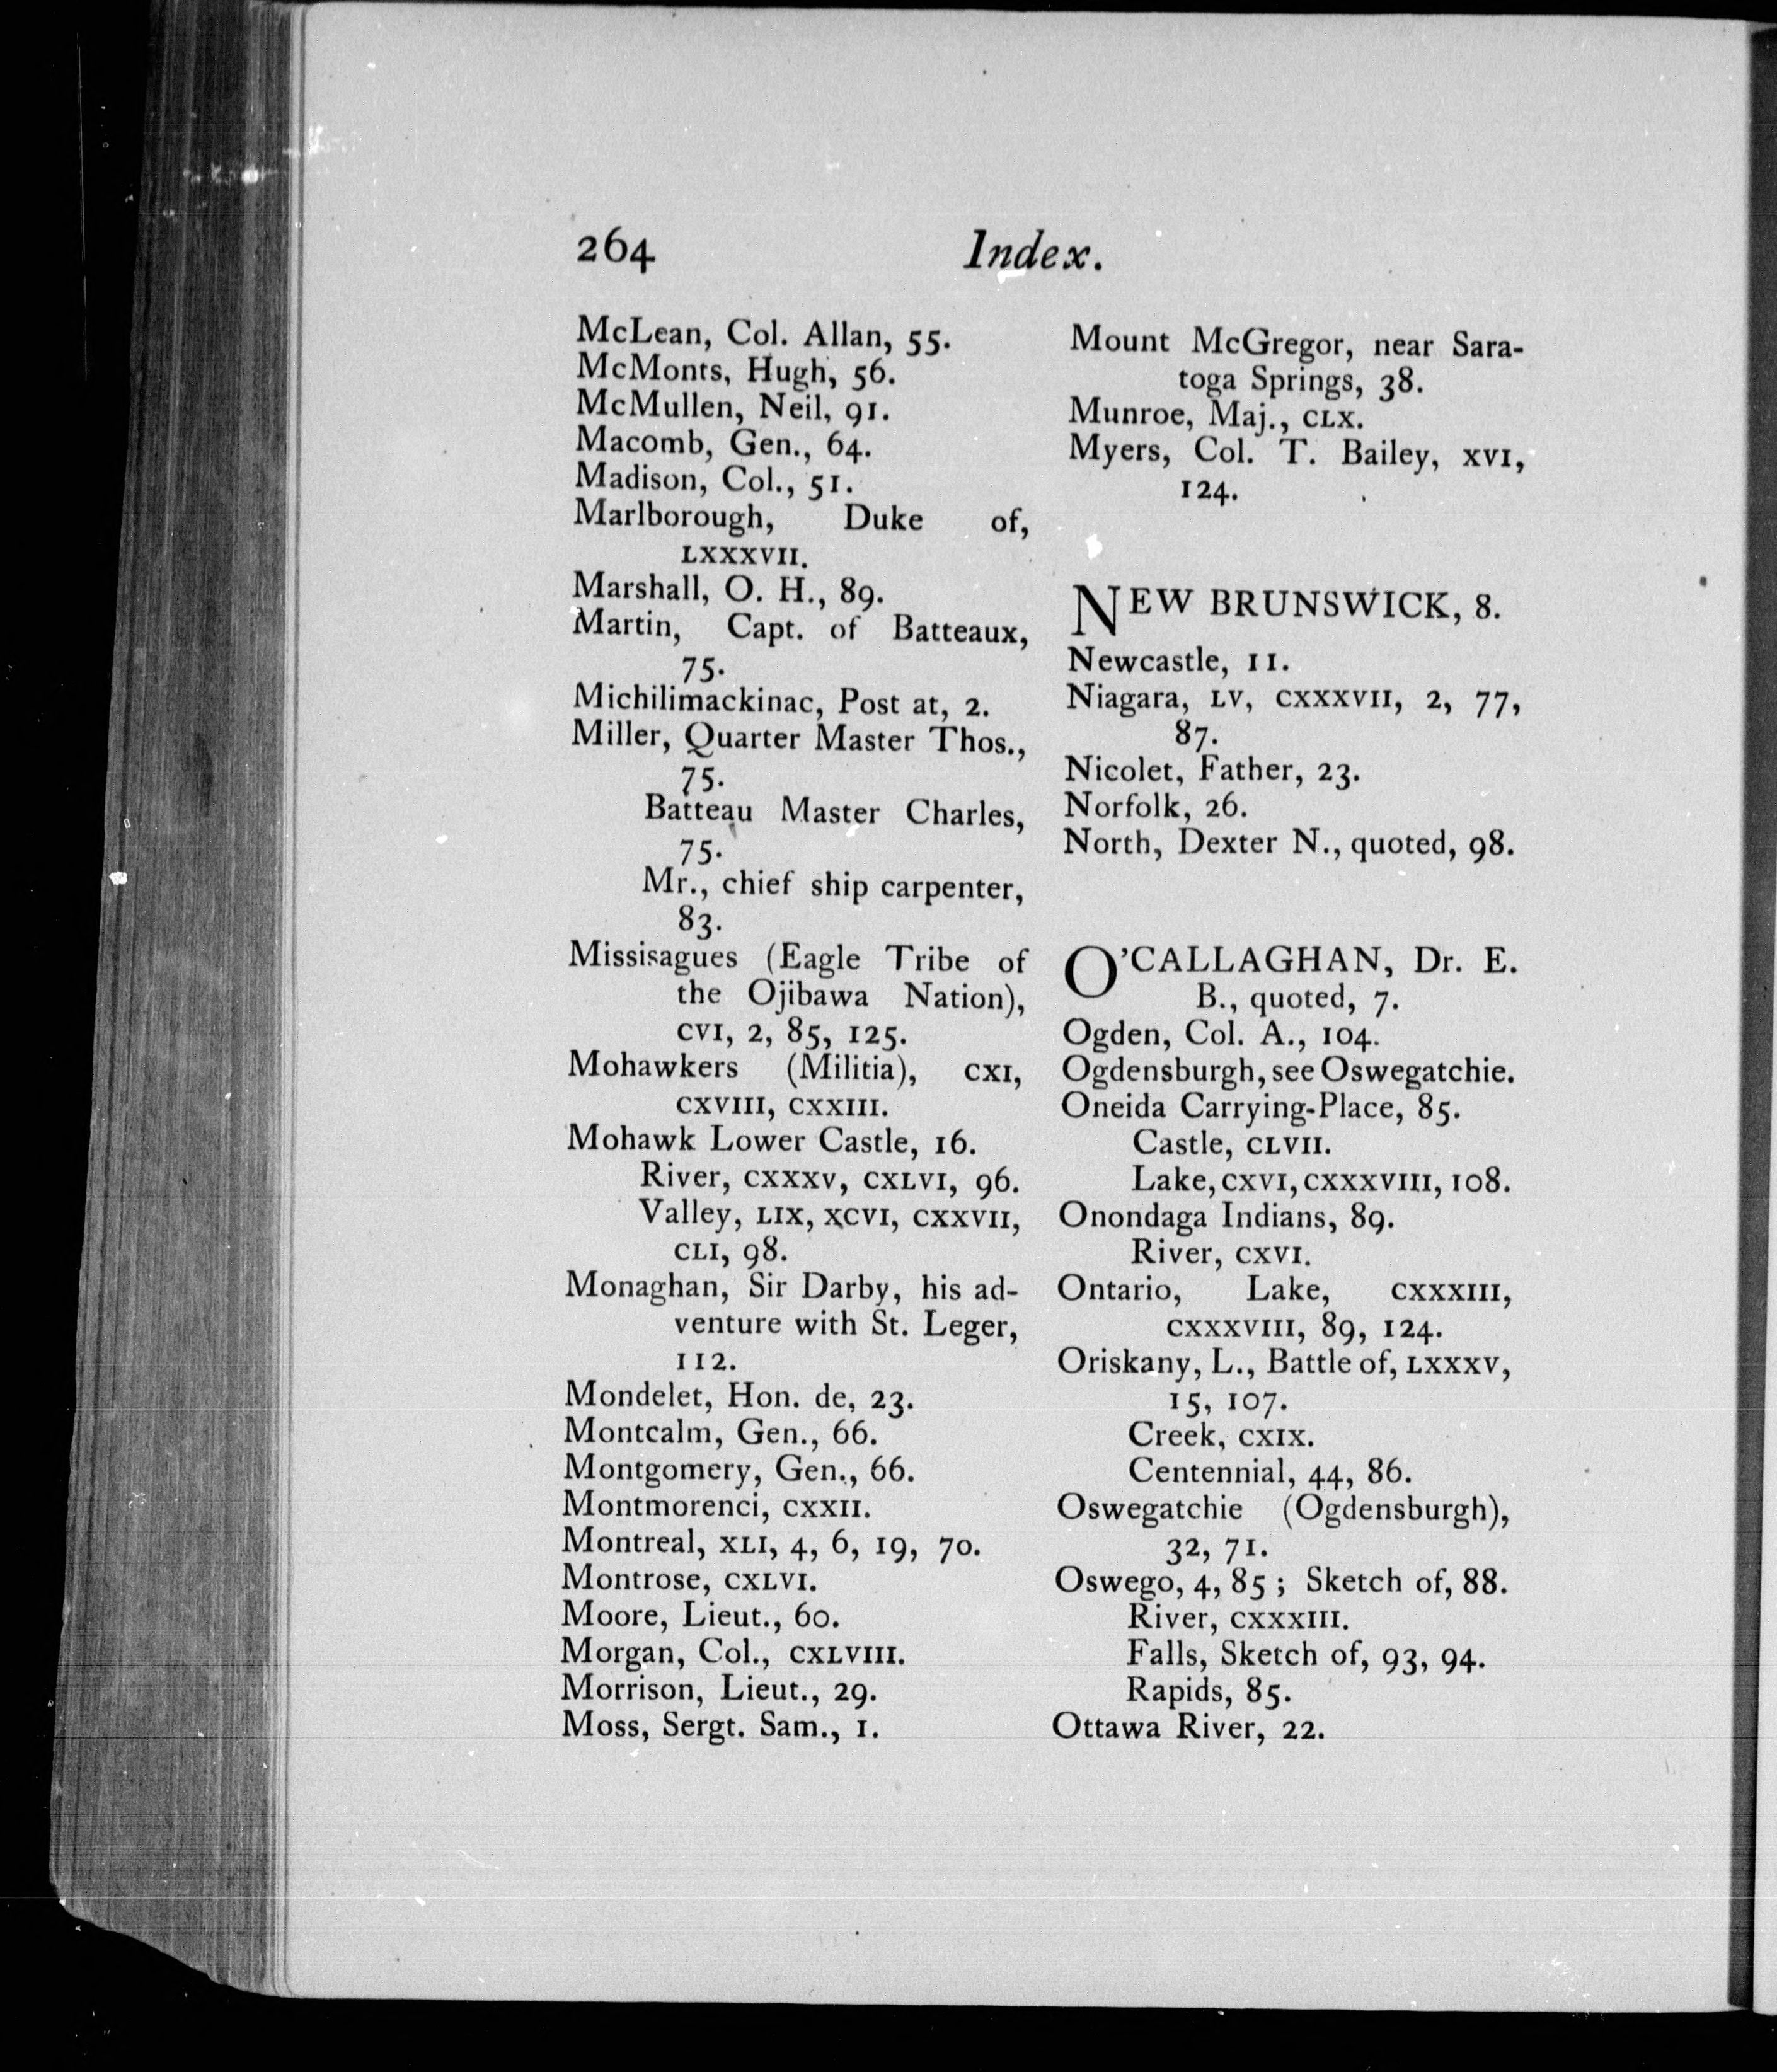 264
Index.
McLean, Col. Allan, 55.
McMonts, Hugh, 56.
McMullen, Neil, 91.
Macomb, Gen., 64.
Madison, Col., 51.
Marlborough, Duke of,
LXXXVII.
Marshall, O. H., 89.
Martin, Capt. of Batteaux,
75.
Michilimackinac, Post at, 2.
Miller, Quarter Master Thos.,
75.
Batteau Master Charles,
75.
Mr., chief ship carpenter,
83.
Missisagues (Eagle Tribe of
the Ojibawa Nation),
CVI, 2, 85, 125.
Mohawkers (Militia), CXI,
CXVIII, CXXIII.
Mohawk Lower Castle, 16.
River, CXXXV, CXLVI, 96.
Valley, LIX, XCVI, CXXVII,
CLI, 98.
Monaghan, Sir Darby, his ad-
venture with St. Leger,
112.
Mondelet, Hon. de, 23.
Montcalm, Gen., 66.
Montgomery, Gen., 66.
Montmorenci, CXXII.
Montreal, XLI, 4, 6, 19, 70.
Montrose, CXLVI.
Moore, Lieut., 60.
Morgan, Col., CXLVIII.
Morrison, Lieut., 29.
Moss, Sergt. Sam., 1.
Mount McGregor, near Sara-
toga Springs, 38.
Munroe, Maj., CLX.
Myers, Col. T. Bailey, XVI,
124.
NEW BRUNSWICK, 8.
Newcastle, 11.
Niagara, LV, CXXXVII, 2, 77,
87.
Nicolet, Father, 23.
Norfolk, 26.
North, Dexter N., quoted, 98.
O'CALLAGHAN, Dr. E.
B., quoted, 7.
Ogden, Col. A., 104.
Ogdensburgh, see Oswegatchie.
Oneida Carrying-Place, 85.
Castle, CLVII.
Lake, CXVI, CXXXVIII, 108.
Onondaga Indians, 89.
River, CXVI.
Ontario, Lake, CXXXIII,
CXXXVIII, 89, 124.
Oriskany, L., Battle of, LXXXV,
15, 107.
Creek, CXIX.
Centennial, 44, 86.
Oswegatchie (Ogdensburgh),
32, 71.
Oswego, 4, 85; Sketch of, 88.
River, CXXXIII.
Falls, Sketch of, 93, 94.
Rapids, 85.
Ottawa River, 22.